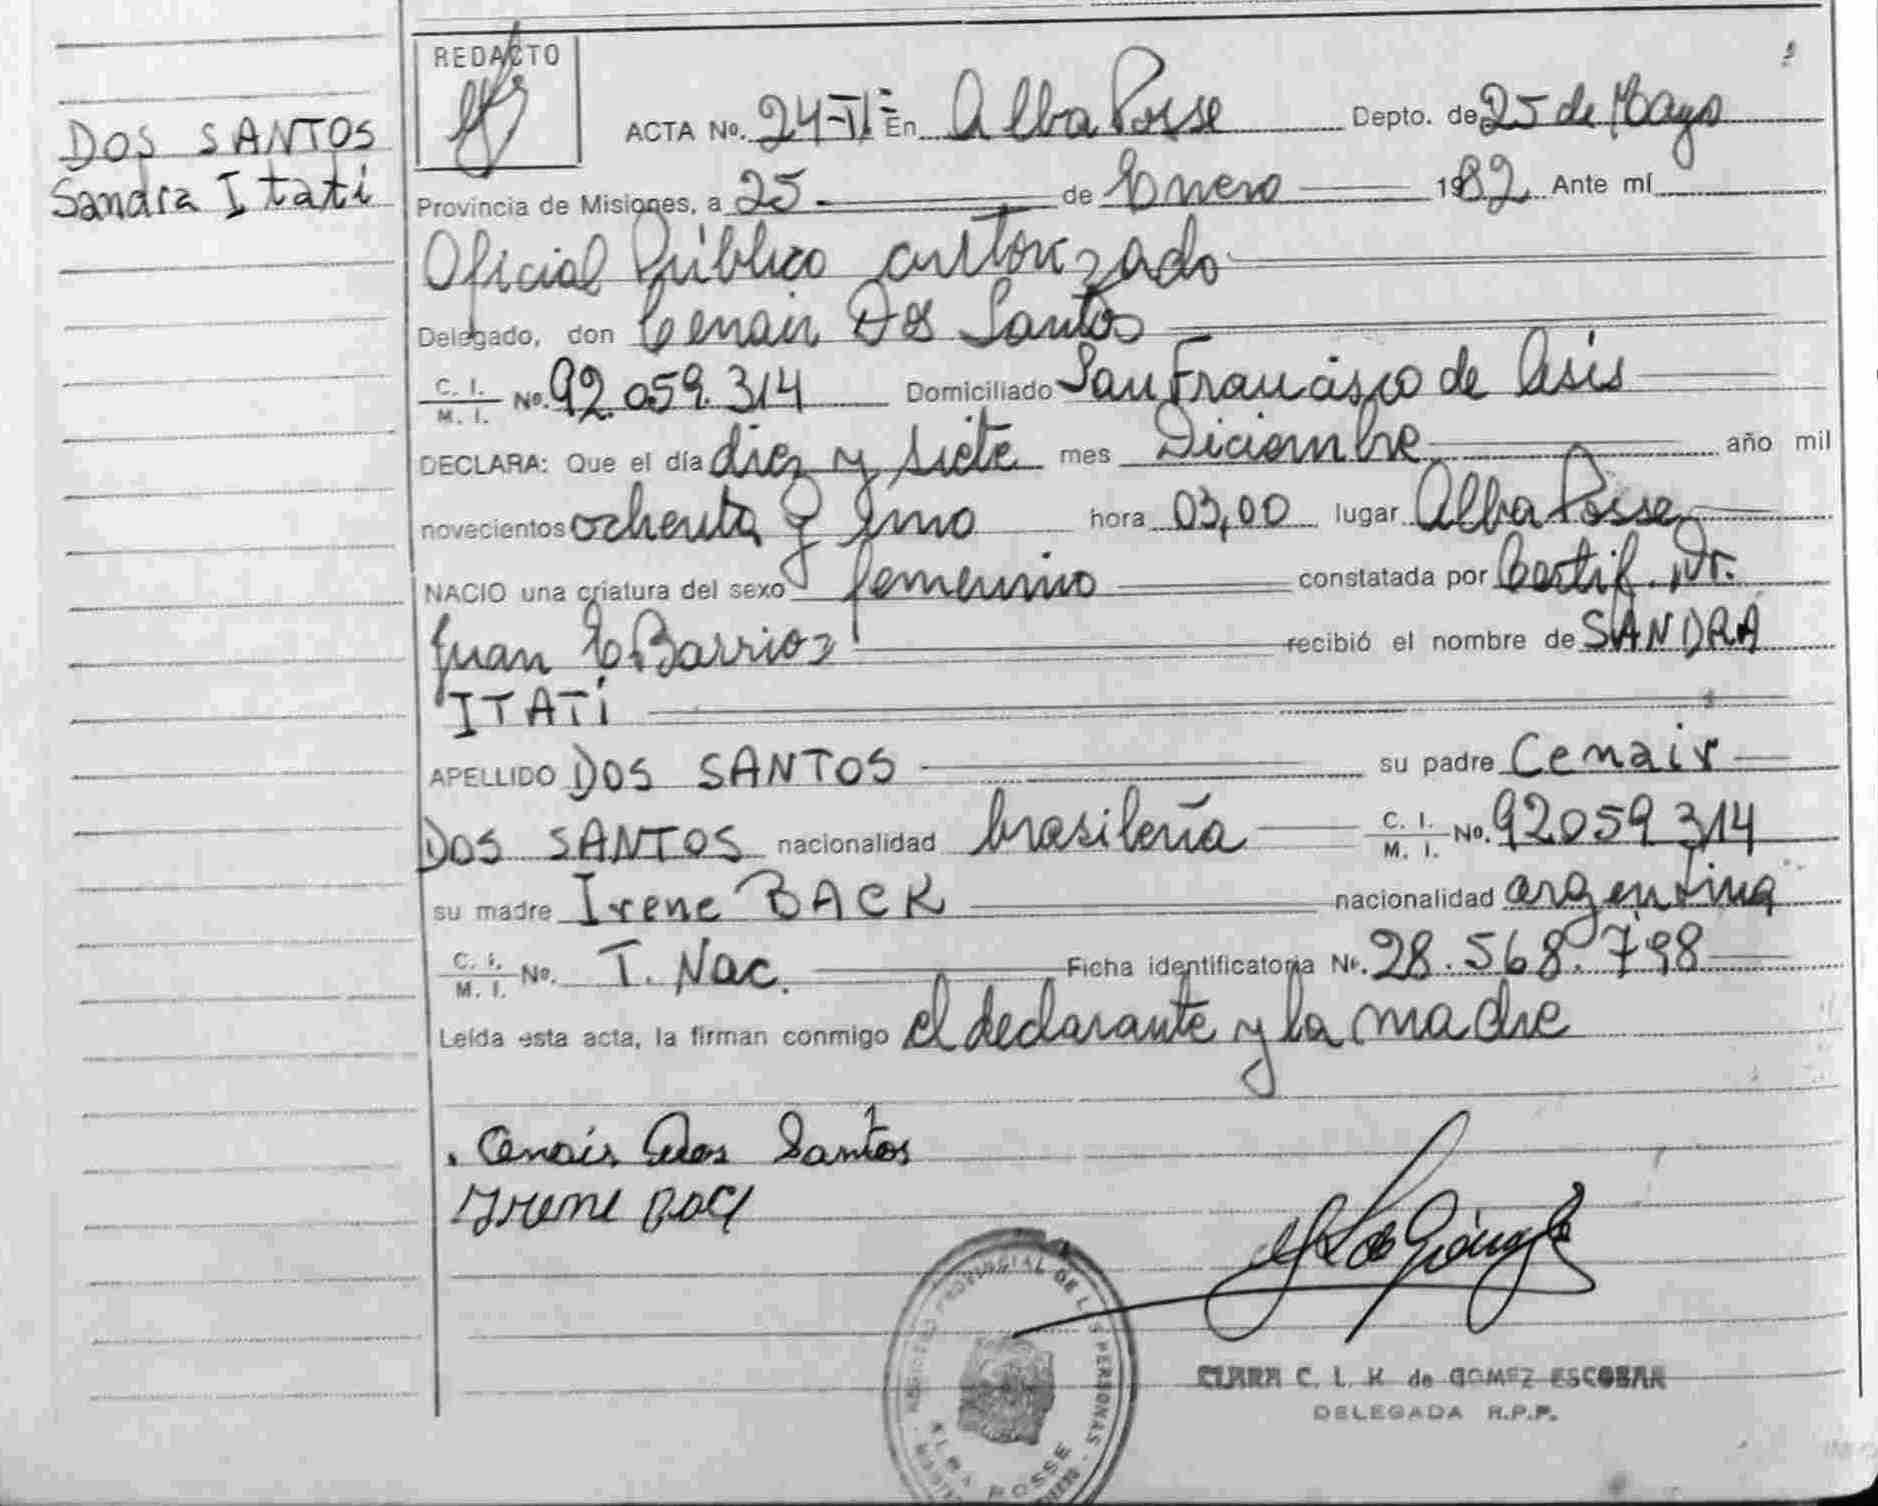 DOS SANTOS
Sandra Itatí
REDACTO
ACTA No. 24-II En Alba Posse Depto. de 25 de Mayo
Provincia de Misiones, a 25 de Enero 1982 Ante mí
Oficial Público autorizado
Delegado, don Cenair Dos Santos
C. I. / M. I. No. 92.059.314 Domiciliado San Francisco de Asis
DECLARA: Que el día diez y siete mes Diciembre año mil
novecientos ochenta y uno hora 03,00 lugar Alba Posse
NACIO una criatura del sexo femenino constatada por Certif. Dr.
Juan E. Barrios recibió el nombre de SANDRA
ITATÍ
APELLIDO DOS SANTOS su padre Cenair
DOS SANTOS nacionalidad brasileña C. I. / M. I. No. 92059314
su madre Irene BACK nacionalidad argentina
C. I. / M. I. No. T. Nac. Ficha identificatoria No. 28.568.798
Leída esta acta, la firman conmigo el declarante y la madre
Cenair Dos Santos
Irene Back
REGISTRO PROVINCIAL DE LAS PERSONAS
ALBA POSSE
CLARA C. L. K. de GOMEZ ESCOBAR
DELEGADA R.P.P.